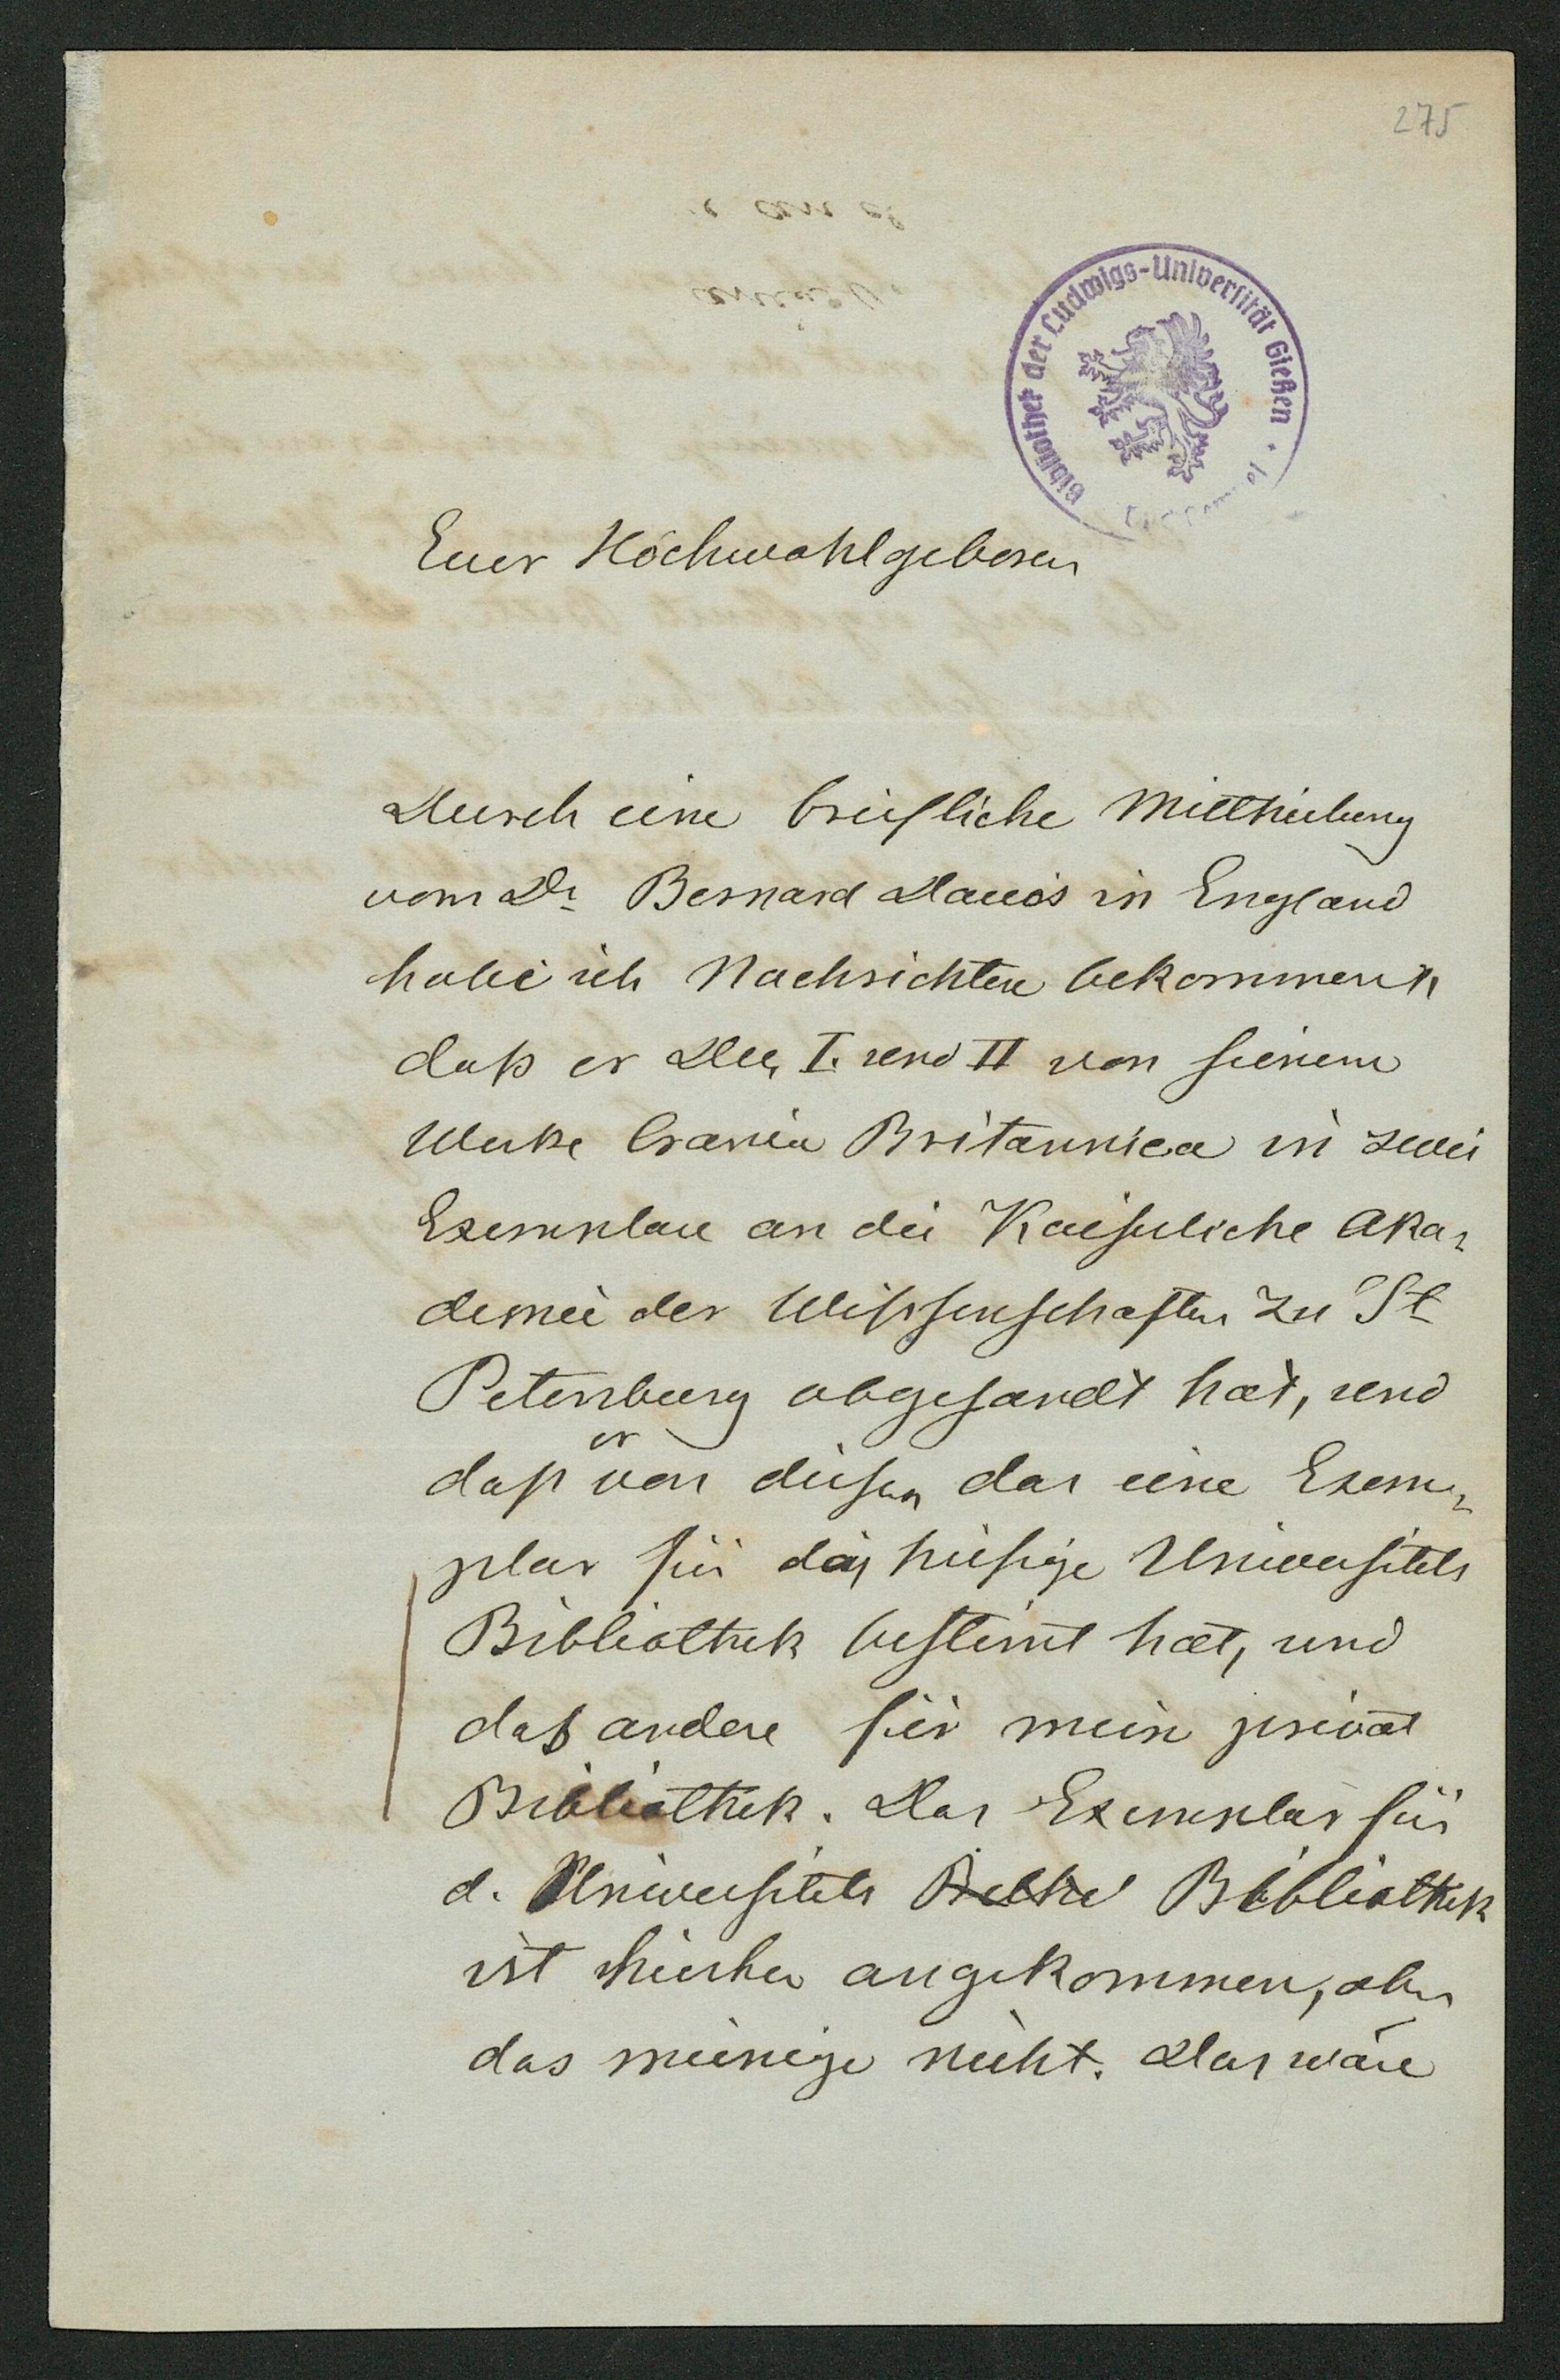 275
Bibliothek der Ludwigs-Universität Gießen
Euer Hochwohlgeboren
Durch eine briefliche Mittheilung
vom Dr Bernard Davis in England
habe ich Nachrichten bekommen
daß er I. und II von seinem
Werke Crania Britannica in zwei
Exemplare an die Kaiserliche Aka-
demie der Wissenschaften zu St
Petersburg abgesandt hat, und
daß er von diesen das eine Exem-
plar für das hiesige Universitets
Bibliothek bestimt hat, und
daß andere für mein privat
Bibliothek. Das Exemplar für
d. Universitets Bibliothek
ist hierher angekommen, aber
das meinige nicht. Das wäre